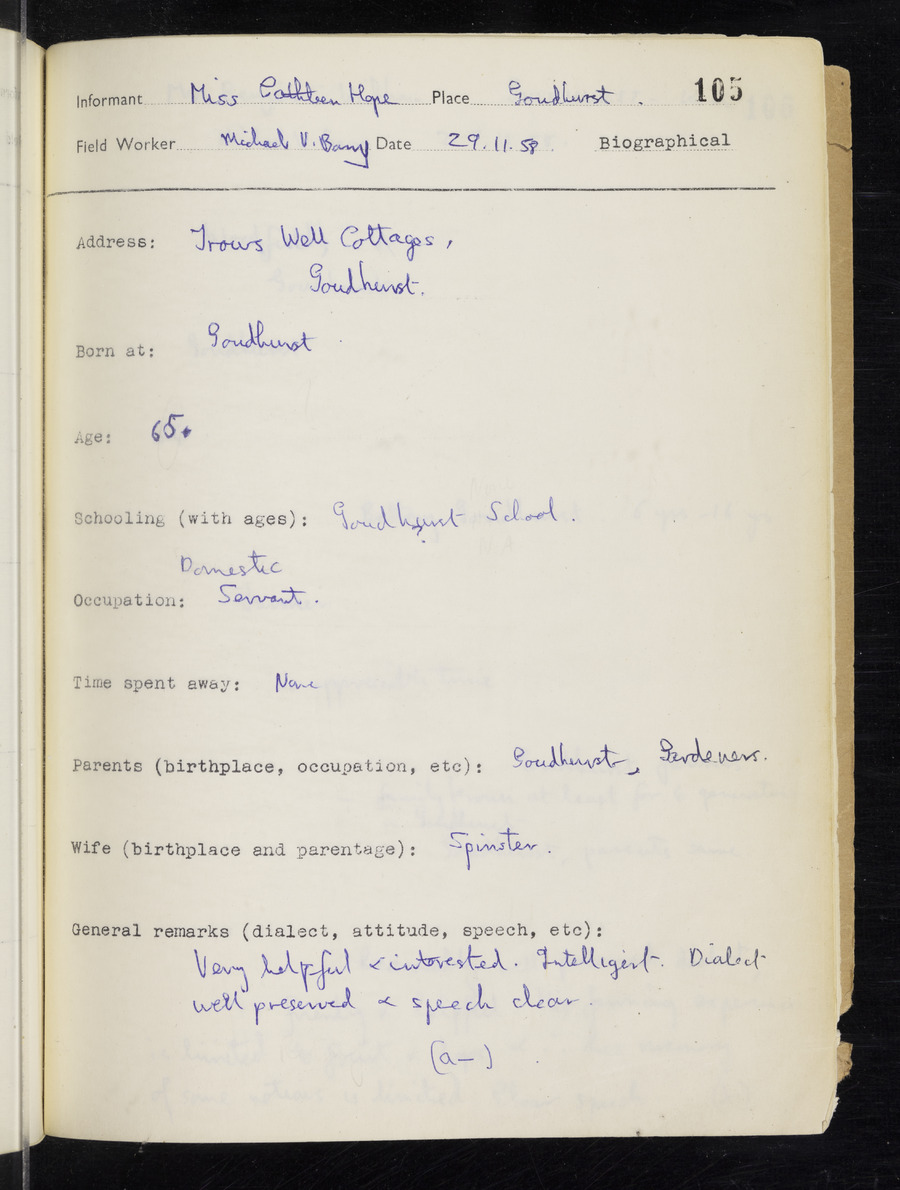 Informant Miss Cathteen Hope Place Goudhurst . 105
Field Worker Michael V. Barry Date 29.11.58 Biographical
Address: Trows Well Cottages,
Goudhurst.
Born at: Goudhurst
Age: 65+
Schooling (with ages): Goudhurst School.
Domestic
Occupation: Servant.
Time spent away: None
Parents (birthplace, occupation, etc): Goudhurst, Gardeners.
Wife (birthplace and parentage): Spinster.
General remarks (dialect, attitude, speech, etc):
Very helpful & interested. Intelligent. Dialect
well preserved & speech clear.
(a-)